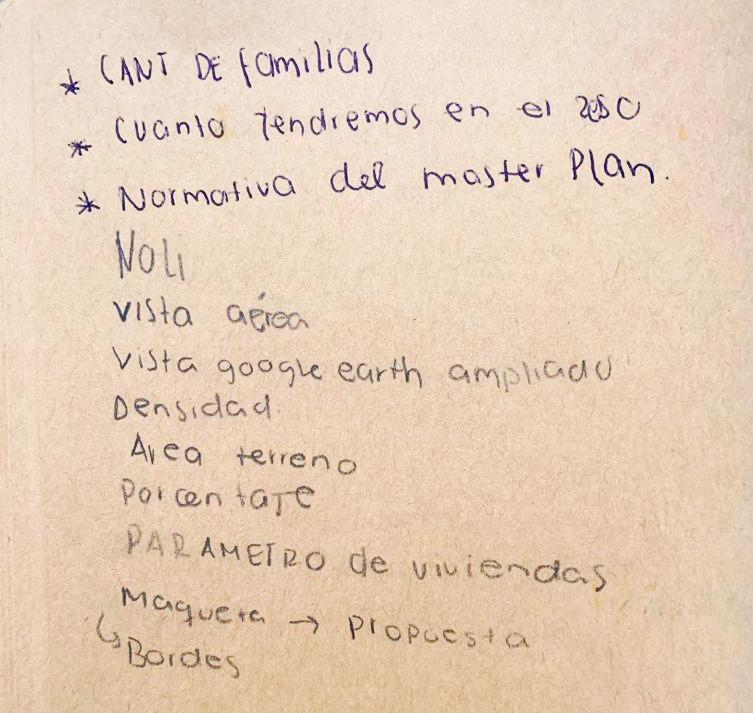 * CANT DE familias
* Cuanto tendremos en el 2050
* Normativa del master Plan.
NOLI
vista aérea
vista google earth ampliado
Densidad
Area terreno
Porcentaje
PARAMETRO de viviendas
Maqueta → Propuesta
↳ Bordes